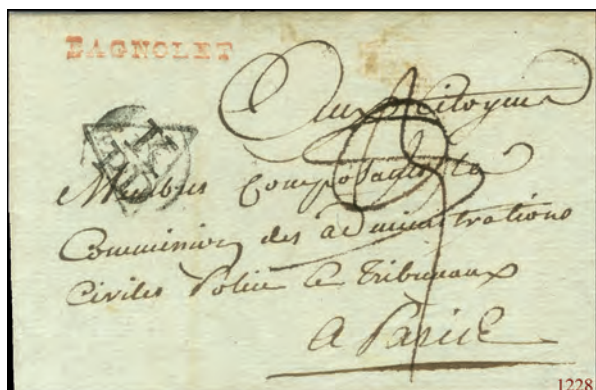 BAGNOLET
Aux Citoyens
Membres Composant la
Commission des administrations
Civiles Police & Tribunaux
a Paris
1228